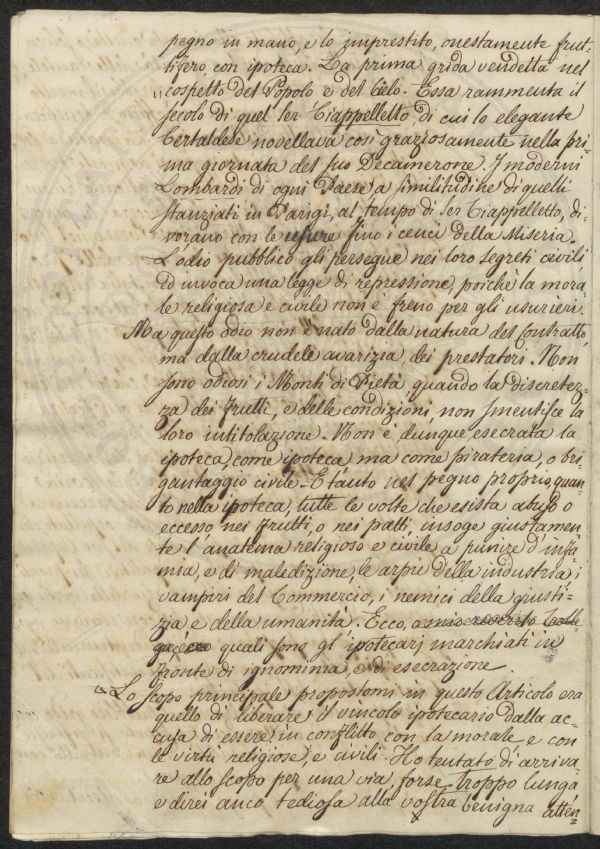 pegno in mano, e lo imprestito, onestamente frut-
tifero, con ipoteca. La prima grida vendetta nel
cospetto del Popolo e del Cielo. Essa rammenta il
secolo di quel Ser Ciappelletto, di cui lo elegante
Certaldese novellava così graziosamente nella pri-
ma giornata del suo Decamerone. I moderni
Lombardi di ogni Paese a similitudine di quelli
stanziati in Parigi, al tempo di Ser Ciappelletto, di-
vorano con le usure fino i cenci della Miseria.
L'odio pubblico gli persegue nei loro segreti covili,
ed invoca una legge di repressione, poichè la mora-
le religiosa e civile non è freno per gli usurieri.
Ma questo odio non è nato dalla natura del Contratto,
ma dalla crudele avarizia dei prestatori. Non
sono odiosi i Monti di Pietà quando la discretez-
za dei frutti, e delle condizioni non smentisce la
loro intitolazione. Non è dunque esecrata la
ipoteca, come ipoteca ma come pirateria, o bri-
gantaggio civile. E tanto nel pegno proprio, quan-
to nella ipoteca, tutte le volte che esista abuso o
eccesso nei frutti, o nei patti, insoge giustamen-
te l'anatema religioso e civile a punire d'infa-
mia, e di maledizione, le arpie della industria, i
vampiri del Commercio, i nemici della giusti-
zia e della umanità. Ecco, a mio
quali sono gl'ipotecarj marchiati in
fronte di ignominia, e di esecrazione.
Lo scopo principale propostomi in questo Articolo era
quello di liberare il vincolo ipotecario dalla ac-
cusa di essere in conflitto con la morale, e con
le virtù religiose, e civili. Ho tentato di arriva-
re allo scopo per una via forse troppo lunga
e direi anco tediosa alla vostra benigna atten-